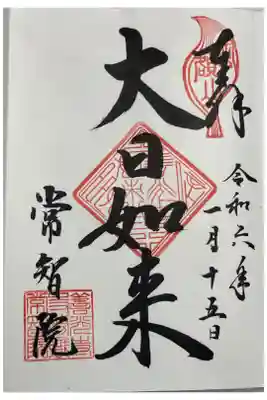 奉拝
令和六年
一月十五日
大日如来
常智院